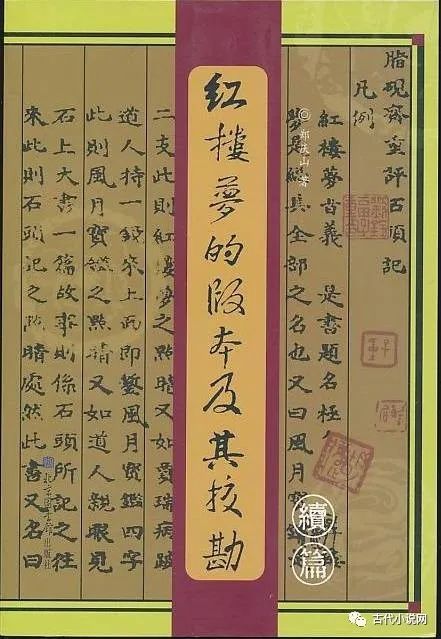 脂硯齋重評石頭記
凡例
紅樓夢旨義 是書題名極
夢是總其全部之名也又曰風月寶
郑庆山 著
红樓夢的版本及其校勘
續篇
二支此則紅樓夢之點睛又如賈瑞病跛
道人持一鏡來上面即鏨風月寶鑑四字
此則風月寶鑑之點睛又如道人親眼見
石上大書一篇故事則係石頭所記之往
來此則石頭記之點睛處然此書又名曰
北京图书馆出版社
古代小说网